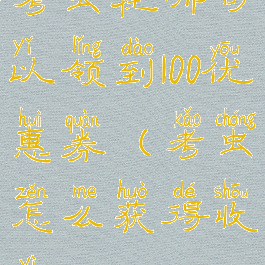 yǐ lǐng dào yōu
以领到100优
huì quàn kǎo chóng
惠券（考虫
zěn me huò dé shōu
怎么获得收
yì